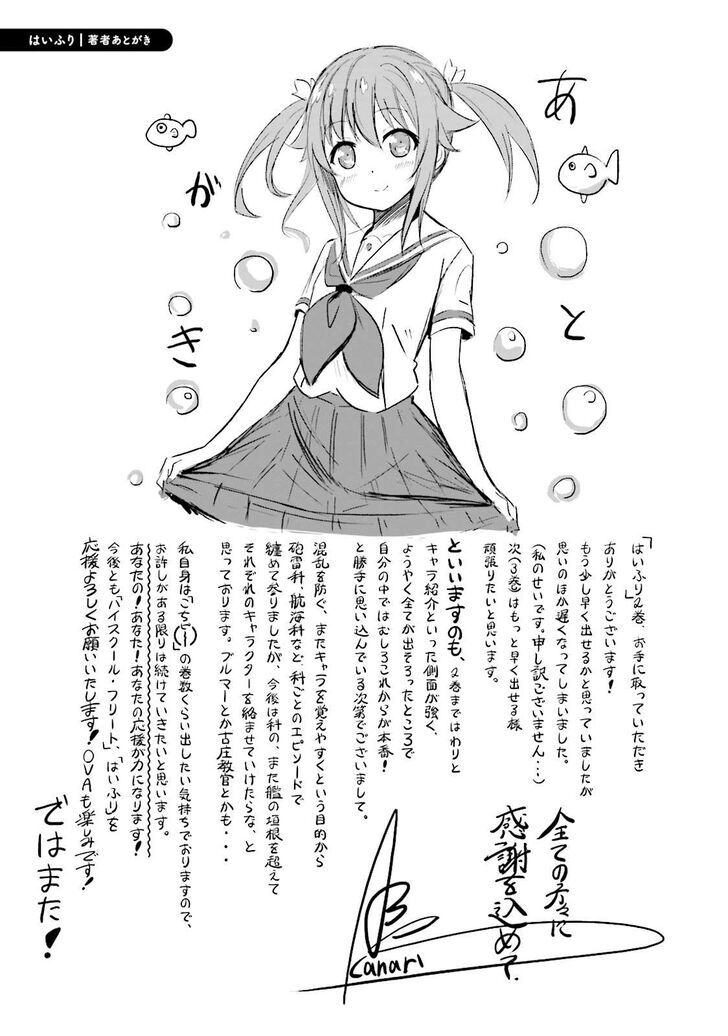 はいふり｜著者あとがき
あとがき
「はいふり」2巻、お手に取っていただき
ありがとうございます！
もう少し早く出せるかと思っていましたが
思いのほか遅くなってしまいました。
（私のせいです。申し訳ございません・・）
次（3巻）はもっと早く出せる様
頑張りたいと思います。
といいますのも、2巻まではわりと
キャラ紹介といった側面が強く、
ようやく全てが出そろったところで
自分の中ではむしろこれからが本番！
と勝手に思い込んでいる次第でございまして。
混乱を防ぐ、またキャラを覚えやすくという目的から
砲雷科、航海科など、科ごとのエピソードで
纏めて参りましたが、今後は科の、また艦の垣根を超えて
それぞれのキャラクターを絡ませていけたらな、と
思っております。ブルマーとか古庄教官とかも・・・
私自身は「こち(亀)」の巻数くらい出したい気持ちでおりますので、
お許しがある限りは続けていきたいと思います。
あなたの！あなた！あなたの応援が力になります！
今後とも「ハイスクール・フリート」、「はいふり」を
応援よろしくお願いいたします！OVAも楽しみです！
ではまた！
全ての方々に
感謝を込めて
Kanari